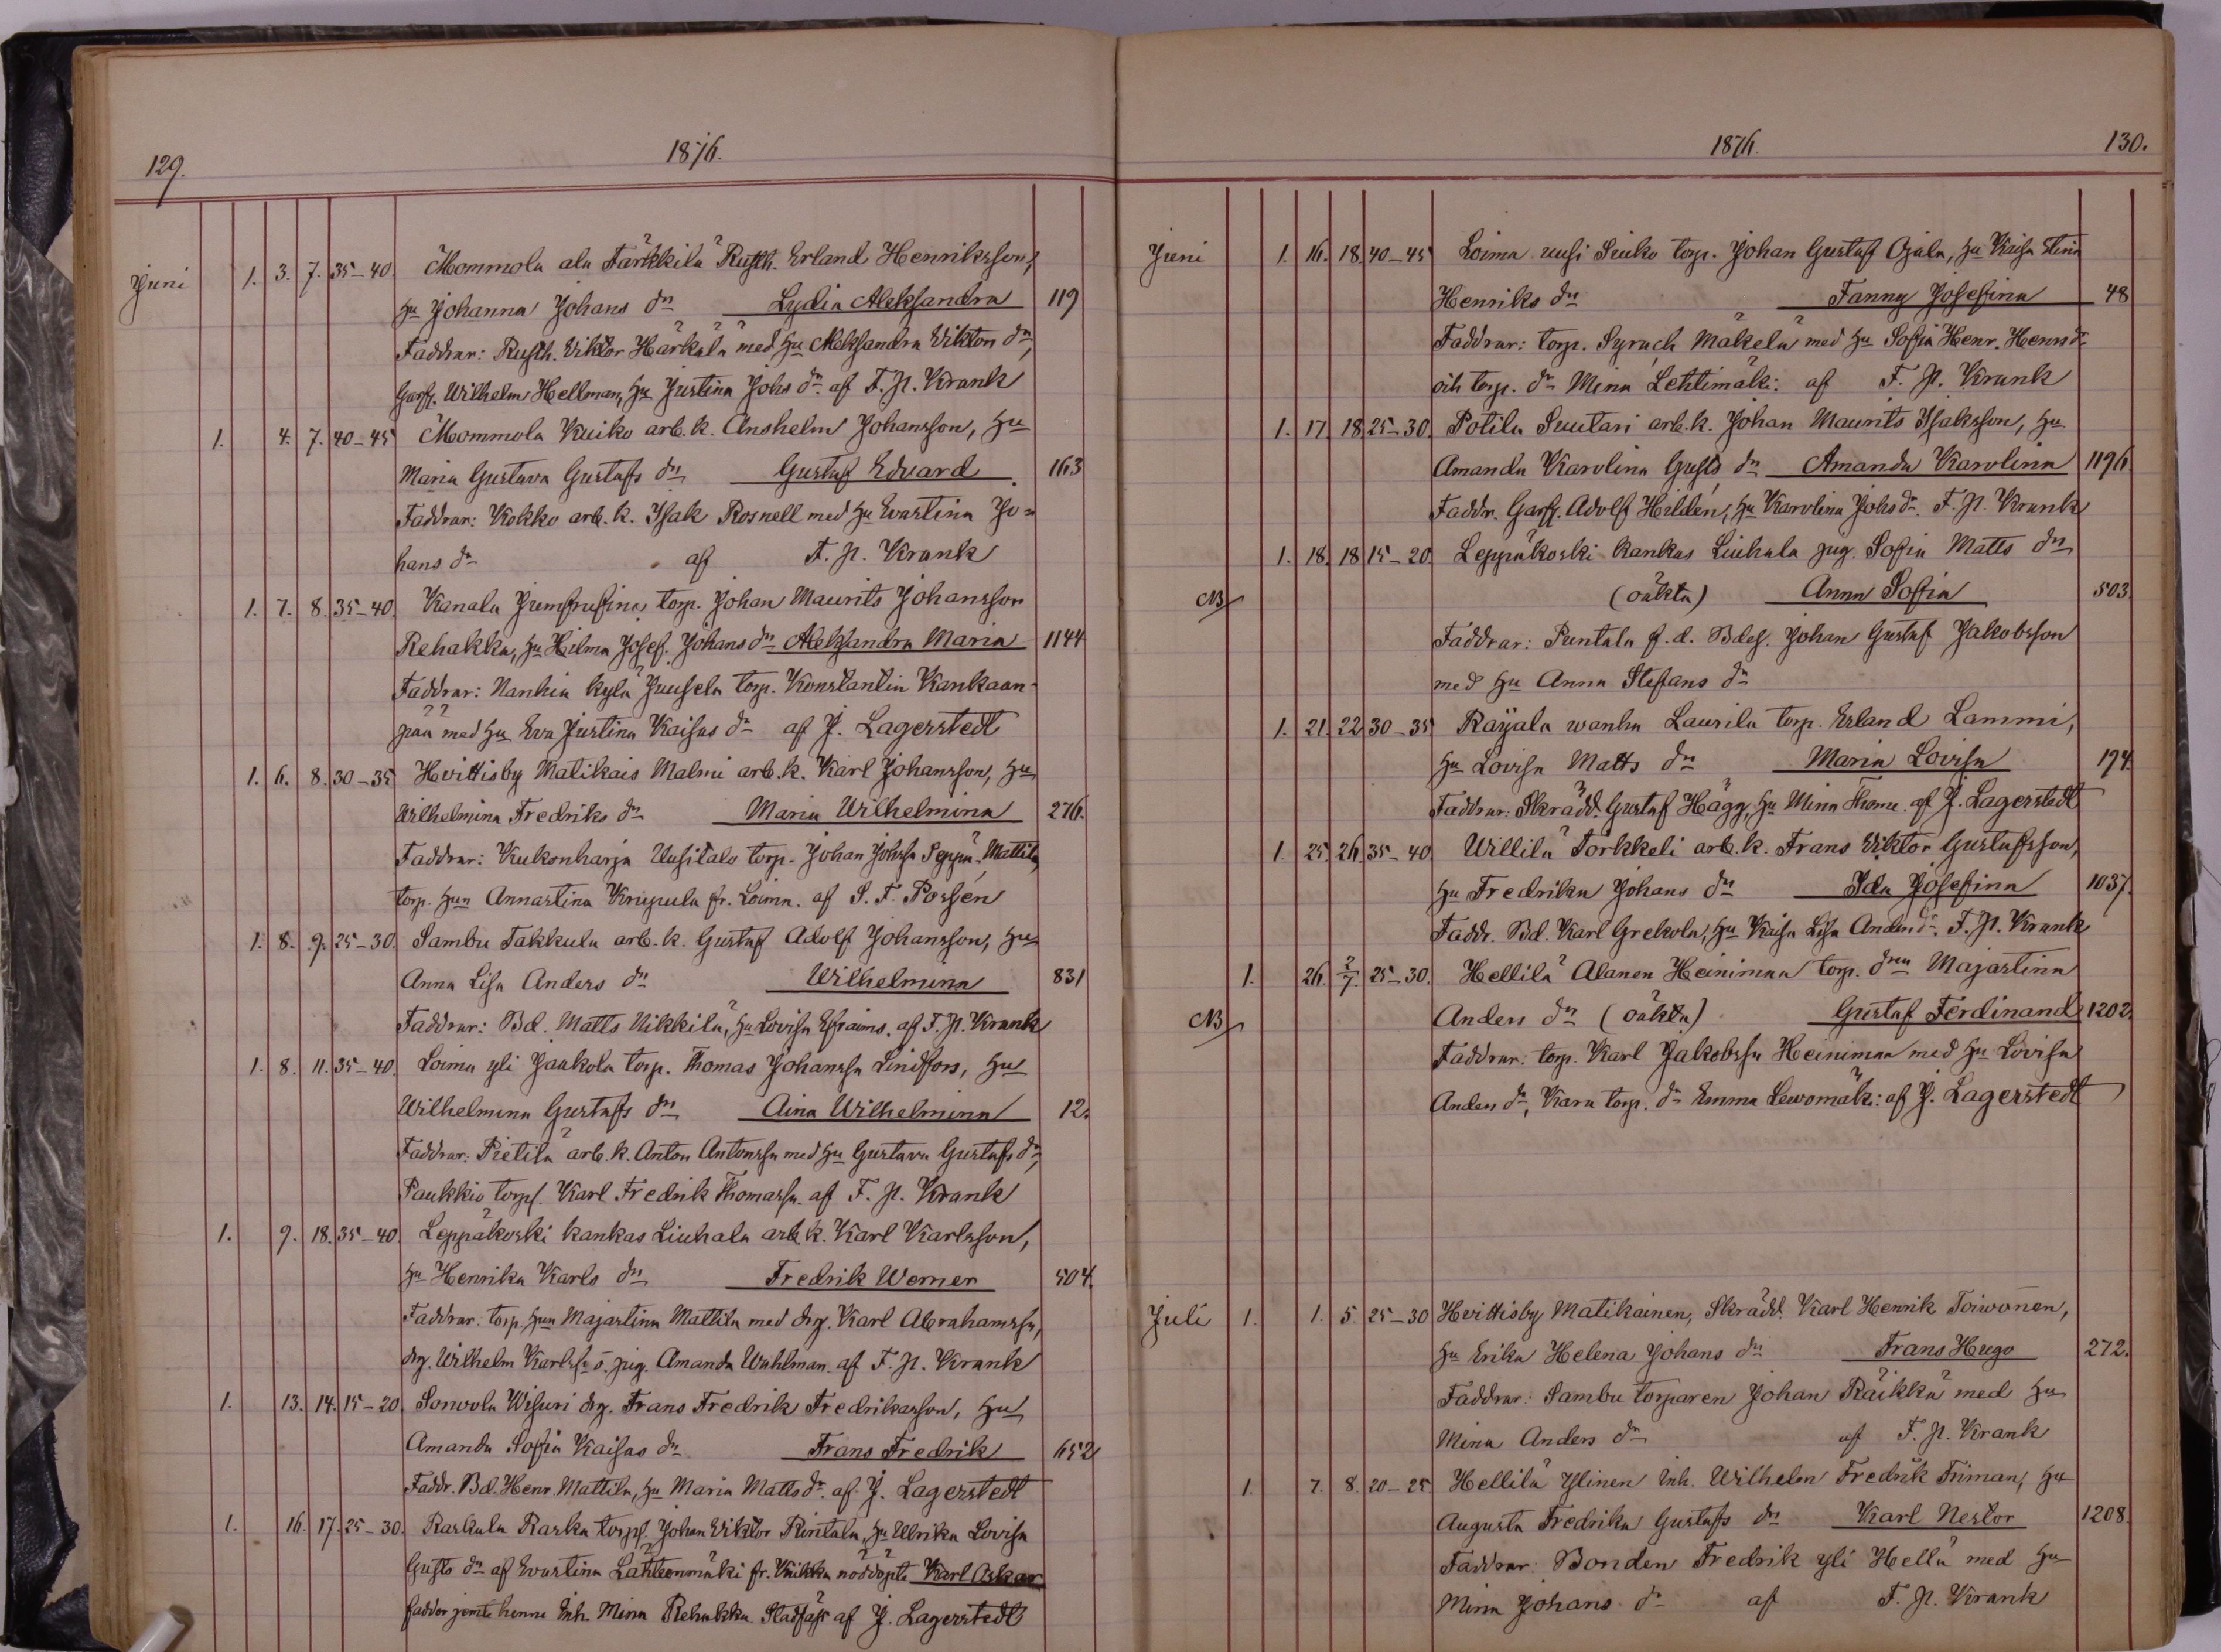 129. 1876.
Juni 1. 3. 7. 35–40. Mommola ala Tärkkilä Rusth. Erland Henriksson,
Hu Johanna Johans dr Lydia Aleksandra 119
Faddrar: Rusth. Viktor Härkälä med Hu Aleksandra Viktors dr,
Garfv. Wilhelm Hellman, Hu Justina Johs dr af F. H. Krank
1. 4. 7. 40–45 Mommola Kuiko arb. k. Anshelm Johansson, Hu
Maria Gustava Gustafs dr Gustaf Edvard. 163
Faddrar: Kokko arb. k. Isak Rosnell med Hu Evastina Jo=
hans dr af F. H. Krank
1. 7. 8. 35–40. Kanala torp. Johan Maurits Johansson
Rehakka, Hu Hilma Josef. Johans dr Aleksandra Maria 1144
Faddrar: Nanhia kylä Juusela torp. Konstantin Kankaan-
pää med Hu Eva Justina Kaisas dr af J. Lagerstedt
1. 6. 8. 30–35 Hvittisby Matikais Malmi arb. k. Karl Johansson, Hu
Wilhelmina Fredriks dr Maria Wilhelmina 276.
Faddrar: Kukonharja Uusitalo torp. Johan Johssn Seppä-Mattila,
torp. Hun Annastina Krupula fr. Loima. af S. F. Porsén
1. 8. 9. 25–30. Sambu Takkula arb. k. Gustaf Adolf Johansson, Hu
Anna Lisa Anders dr Wilhelmina 831
Faddrar: Bd. Matts Nikkilä, Hu Lovisa Efraims. af F. H. Krank
1. 8. 11. 35–40. Loima yli Jaakola torp. Thomas Johanssn Lindfors, Hu
Wilhelmina Gustafs dr Aina Wilhelmina 12.
Faddrar: Pietilä arb. k. Anton Antonssn med Hu Gustava Gustafs dr,
Paukkio torps. Karl Fredrik Thomassn. af F. H. Krank
1. 9. 18. 35–40. Leppäkoski kankas Liuhala arb. k. Karl Karlsson,
Hu Henrika Karls dr Fredrik Werner 504.
Faddrar. torp. Hun Majastina Mattila med drg. Karl Abrahamssn,
drg. Wilhelm Karlssn o. pig. Amanda Wahlman. af F. H. Krank
1. 13. 14. 15–20 Sonvola Wisuri drg. Frans Fredrik Fredriksson, Hu
Amanda Sofia Kaisas dr Frans Fredrik 652
Faddr. Bd. Henr Mattila, Hu Maria Matts dr. af J. Lagerstedt
1. 16. 17. 25–30. Raskala Raska torps. Johan Viktor Rintala, Hu Ulrika Lovisa
Gusts dr af Evastina Lähteenmäki fr. nöddöpt: Karl Oskar
faddor jemte henne Inh. Mina Rehakka. af J. Lagerstedt
1876. 130.
Juni 1. 16. 18. 40–45 Loima uusi Seuko torp. Johan Gustaf Ojala, Hu Kaisa Stina
Henriks dr Fanny Josefina 48
Faddrar: torp. Syrach Mäkelä med Hu Sofia Henr. Henrs dr
och torp. dr Mina Lehtimäki: af F. H. Krank
1. 17. 18. 25–30. Potila Suutari arb. k. Johan Maurits Isaksson, Hu
Amanda Karolina Gusts dr Amanda Karolina 1196
Faddr. Garfv. Adolf Hildén, Hu Karolina Johs dr. F. H. Krank
1. 18. 18 15–20. Leppäkoski kankas Liuhala pig. Sofia Matts dr
NB (oäkta) Anna Sofia 503.
Faddrar: Puntala f. d. Bdes. Johan Gustaf Jakobsson
med Hu Anna Stefans dr
1. 21. 22. 30–35 Raijala wanha Laurila torp. Erland Lammi,
Hu Lovisa Matts dr Maria Lovisa 194.
Faddrar: Skrädd. Gustaf Hägg, Hu Mina Thome. af J. Lagerstedt
1. 25. 26. 35–40. Willilä Törkkeli arb. k. Frans Viktor Gustafsson,
Hu Fredrika Johans dr Ida Josefina 1037.
Faddr. Bd. Karl Grekola, Hu Kaisa Lisa Anders dr. F. H. Krank
1. 26. 2/7. 25–30. Hellilä Alanen Heinimaa torp. dren Majastina
NB Anders dr (oäkta) Gustaf Ferdinand 1202.
Faddrar: torp. Karl Jakobssn Heinimaa med Hu Lovisa
Anders dr, Kara torp. dr Emma Lewomäki: af J. Lagerstedt
Juli 1. 1. 5. 25–30 Hvittisby Matikainen, Skrädd. Karl Henrik Toiwonen,
Hu Erika Helena Johans dr Frans Hugo 272.
Faddrar: Sambu torparen Johan Räikkä med Hu
Mina Anders dr af F. H. Krank
1. 7. 8. 20–25 Hellilä Ylinen Inh. Wilhelm Fredrik Friman, Hu
Augusta Fredrika Gustafs dr Karl Nestor 1208.
Faddrar. Bonden Fredrik yli Hellä med Hu
Mina Johans dr af F. H. Krank